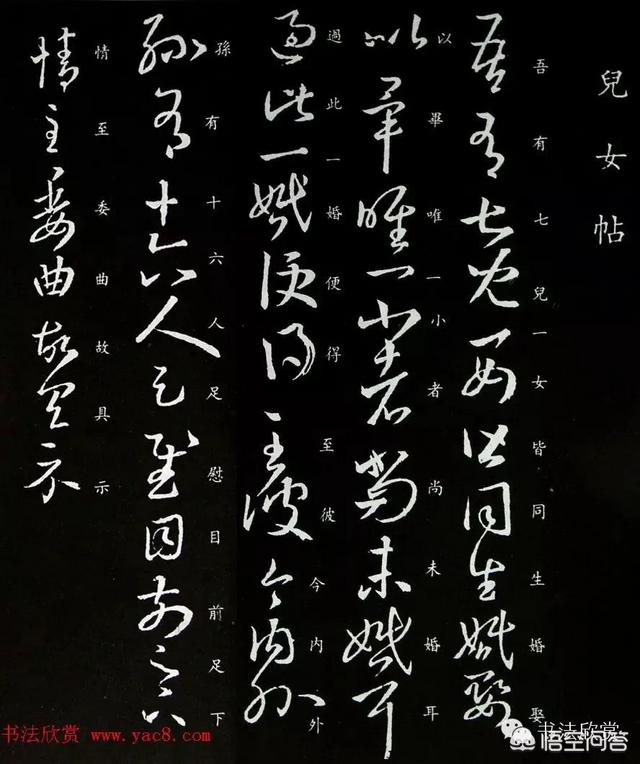 兒女帖
吾有七兒一女皆同生婚娶
以畢唯一小者尚未婚耳
過此一婚便得至彼今内外
孫有十六人足慰目前足下
情至委曲故具示
书法欣赏 www.yac8.com
书法欣赏
悟空问答